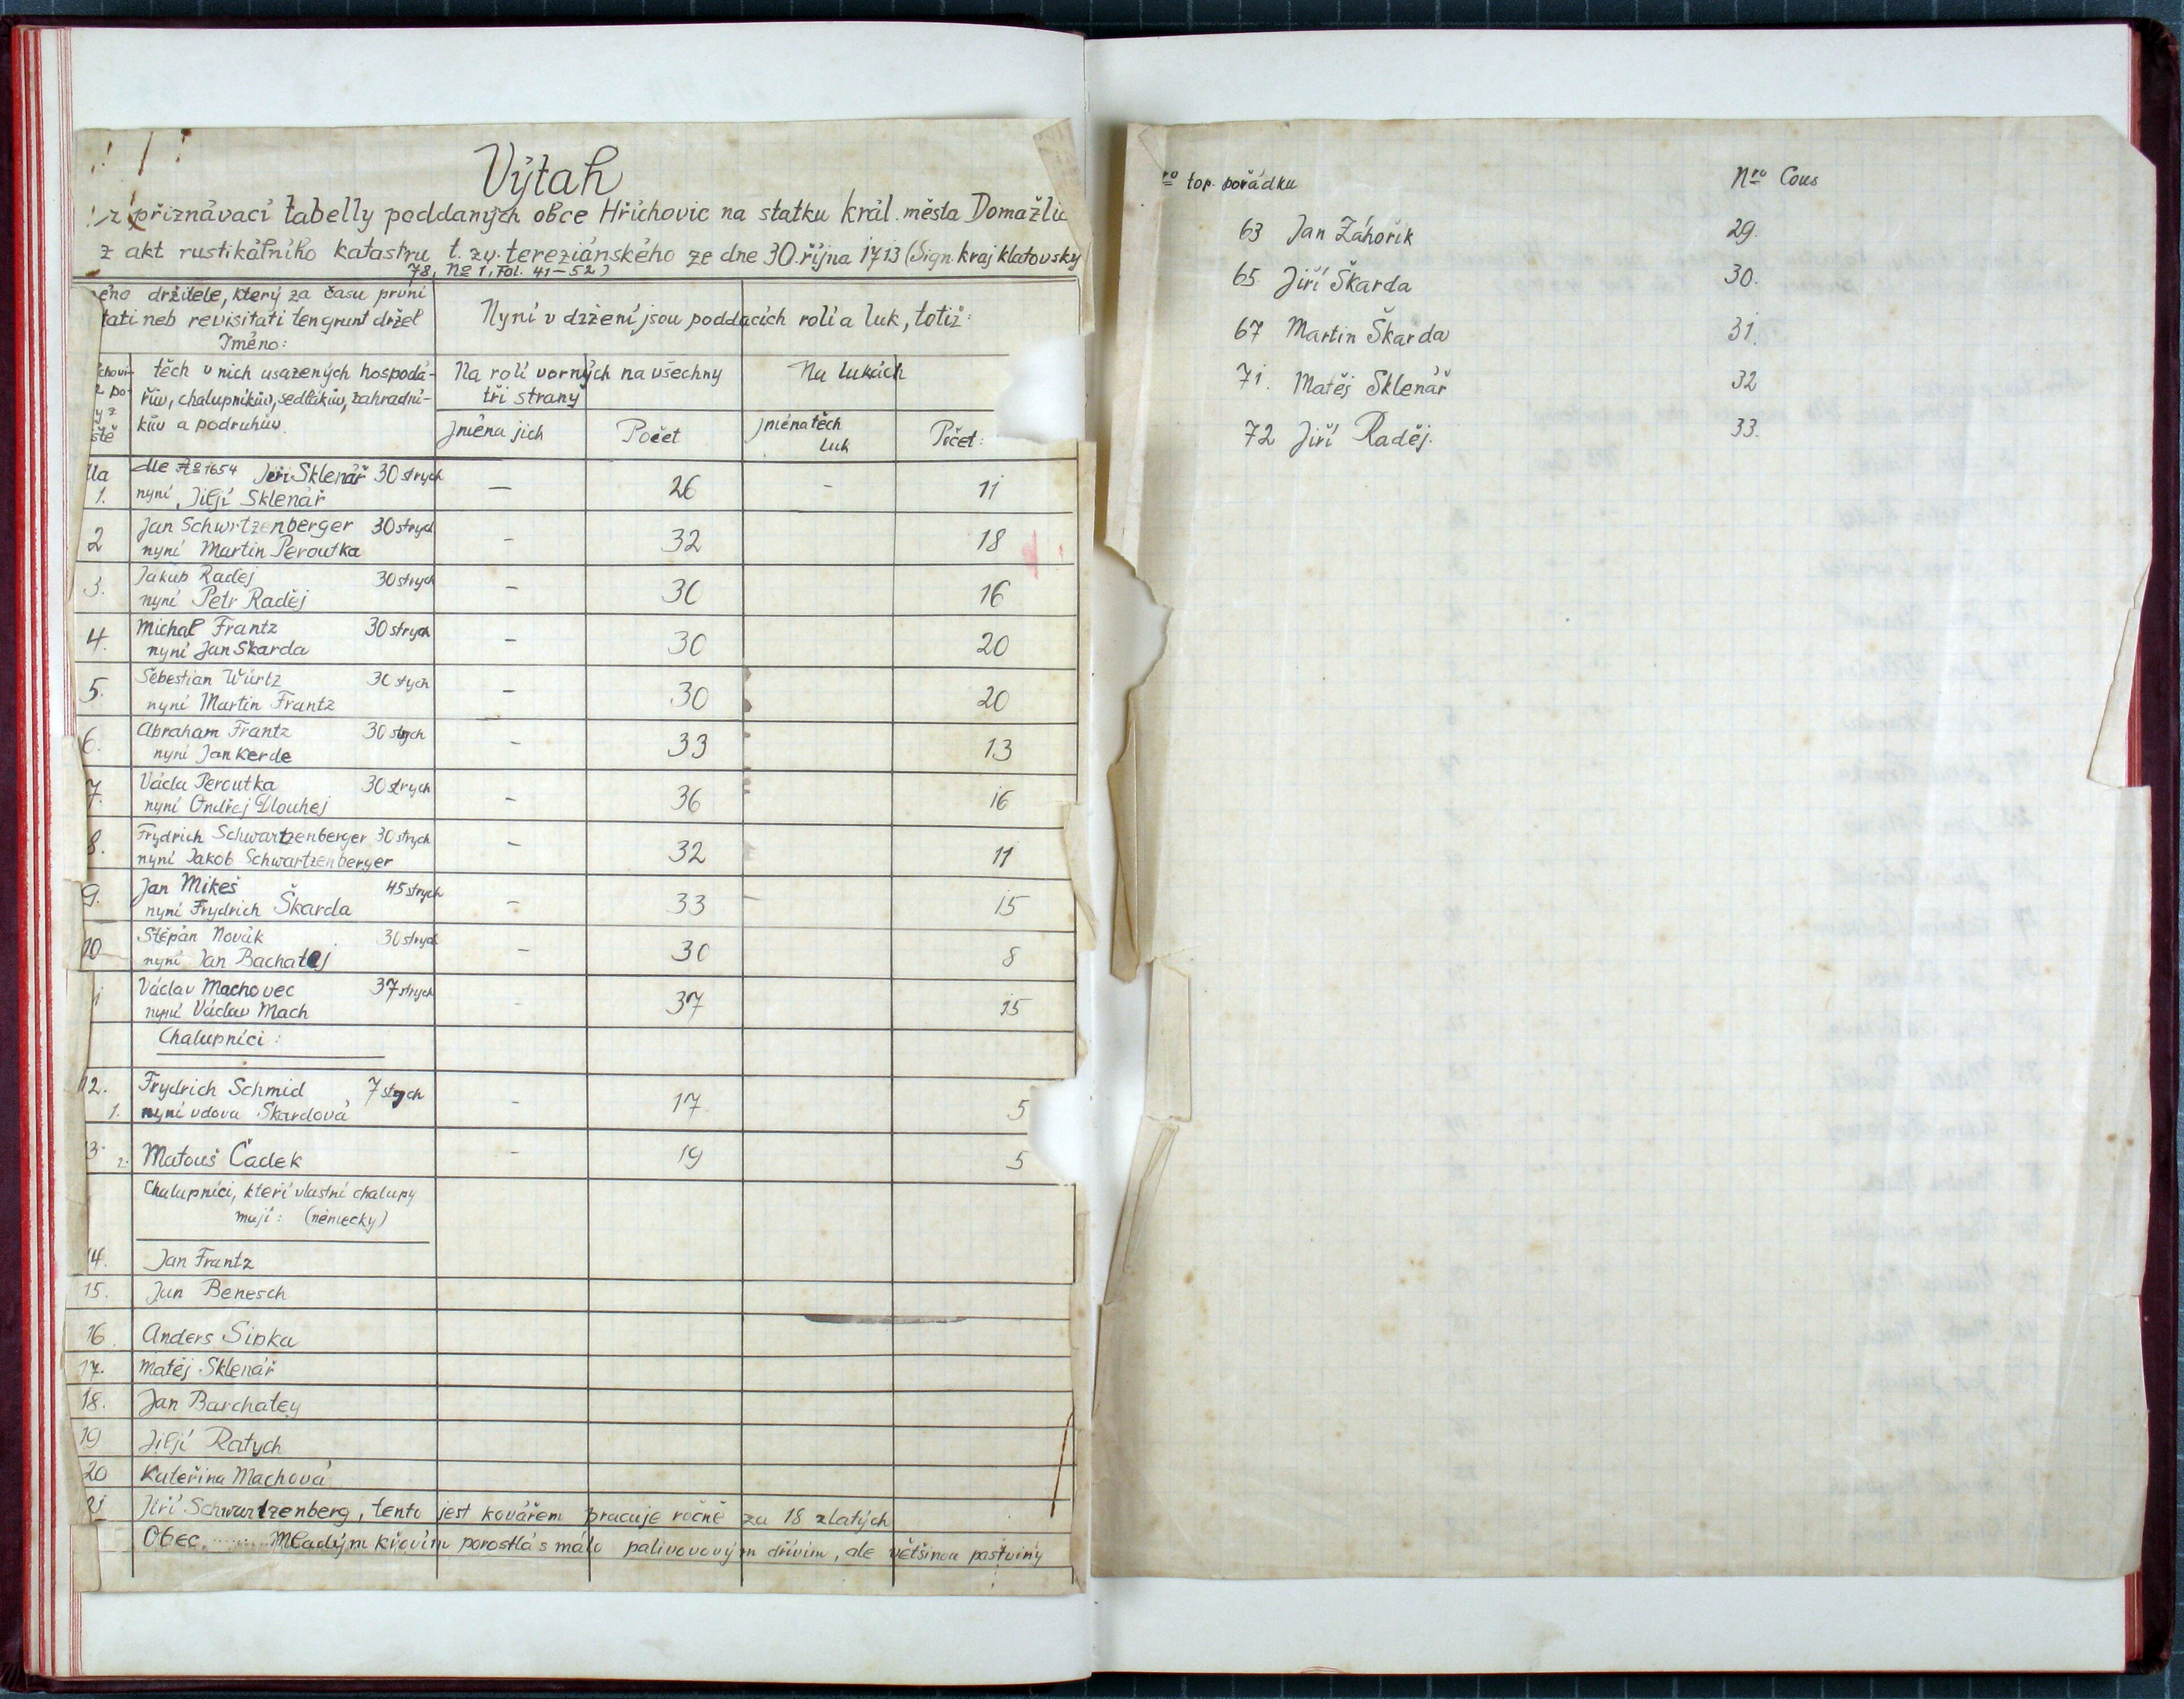 Výtah
z přiznávací tabelly poddaných obce Hříchovic na statku král. města Domažlic
z akt rustikálního katastru t. zv. tereziánského ze dne 30. října 1713 (Sign. kraj klatovský
78, No 1, Fol. 41–52)
držitele, který za času první
neb revisitati ten grunt držel
Jméno:
Nyní v držení jsou poddacích rolí a luk, totiž:
těch v nich usazených hospodá-
řův, chalupníkův, sedlákův, zahradní-
kův a podruhův
Na rolí vorných na všechny
tři strany
Na lukách
Jména jich
Počet
jména těch
luk
Počet:
dle Ao 1654 Jiří Sklenář 30 strych
1. nyní Jiljí Sklenář – 26 – 11
Jan Schwrtzenberger 30 strych
2 nyní Martin Peroutka – 32 18
Jakub Raděj 30 strych
3. nyní Petr Raděj – 30 16
Michal Frantz 30 strych
4. nyní Jan Škarda – 30 20
Šebestian Würtz 30 stych
5. nyní Martin Frantz – 30 20
Abraham Frantz 30 stych
6. nyní Jan Kerde – 33 13
Václa Peroutka 30 strych
7. nyní Ondřej Dlouhej – 36 16
Frydrich Schwartzenberger 30 strych
8. nyní Jakob Schwartzenberger – 32 11
Jan Mikeš 45 strych
9. nyní Frydrich Škarda – 33 – 15
Štěpán Novák 30 strych
10 nyní Jan Bachatej – 30 8
Václav Machovec 37 strych
nyní Václav Mach – 37 15
Chalupníci:
12. Frydrich Schmid 7 stych
1. nyní vdova Škardová – 17 5
3. 2. Matouš Čadek – 19 5
Chalupníci, kteří vlastní chalupy
mají: (německy)
14. Jan Frantz
15. Jan Benesch
16. Anders Sipka
17. Matěj Sklenář
18. Jan Barchatey
19 Jiljí Ratych
20 Kateřina Machová
21 Jiří Schwartzenberg, tento jest kovářem pracuje ročně za 18 zlatých
Obec ......... Mladým křovím porostlá s málo palivovovým dřívím, ale většinou pastviny
ro top. pořádku Nro Cous
63 Jan Záhořík 29.
65 Jiří Škarda 30.
67 Martin Škarda 31.
71. Matěj Sklenář 32
72 Jiří Raděj. 33.